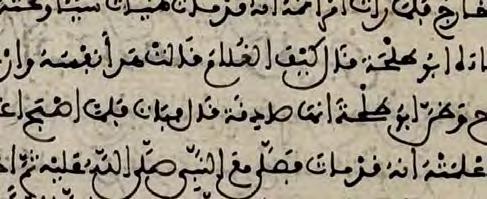 خارج فلما رات امراته انه قد مات هيات شيئا ونحته
ابو طلحة قال كيف الغلام قالت هدأ نفسه وار
ح وظن ابو طلحة انها صادقة قال فبات فلما اصبح اغ
اعلمته انه قد مات فصلى مع النبي صلى الله عليه ثم اخ